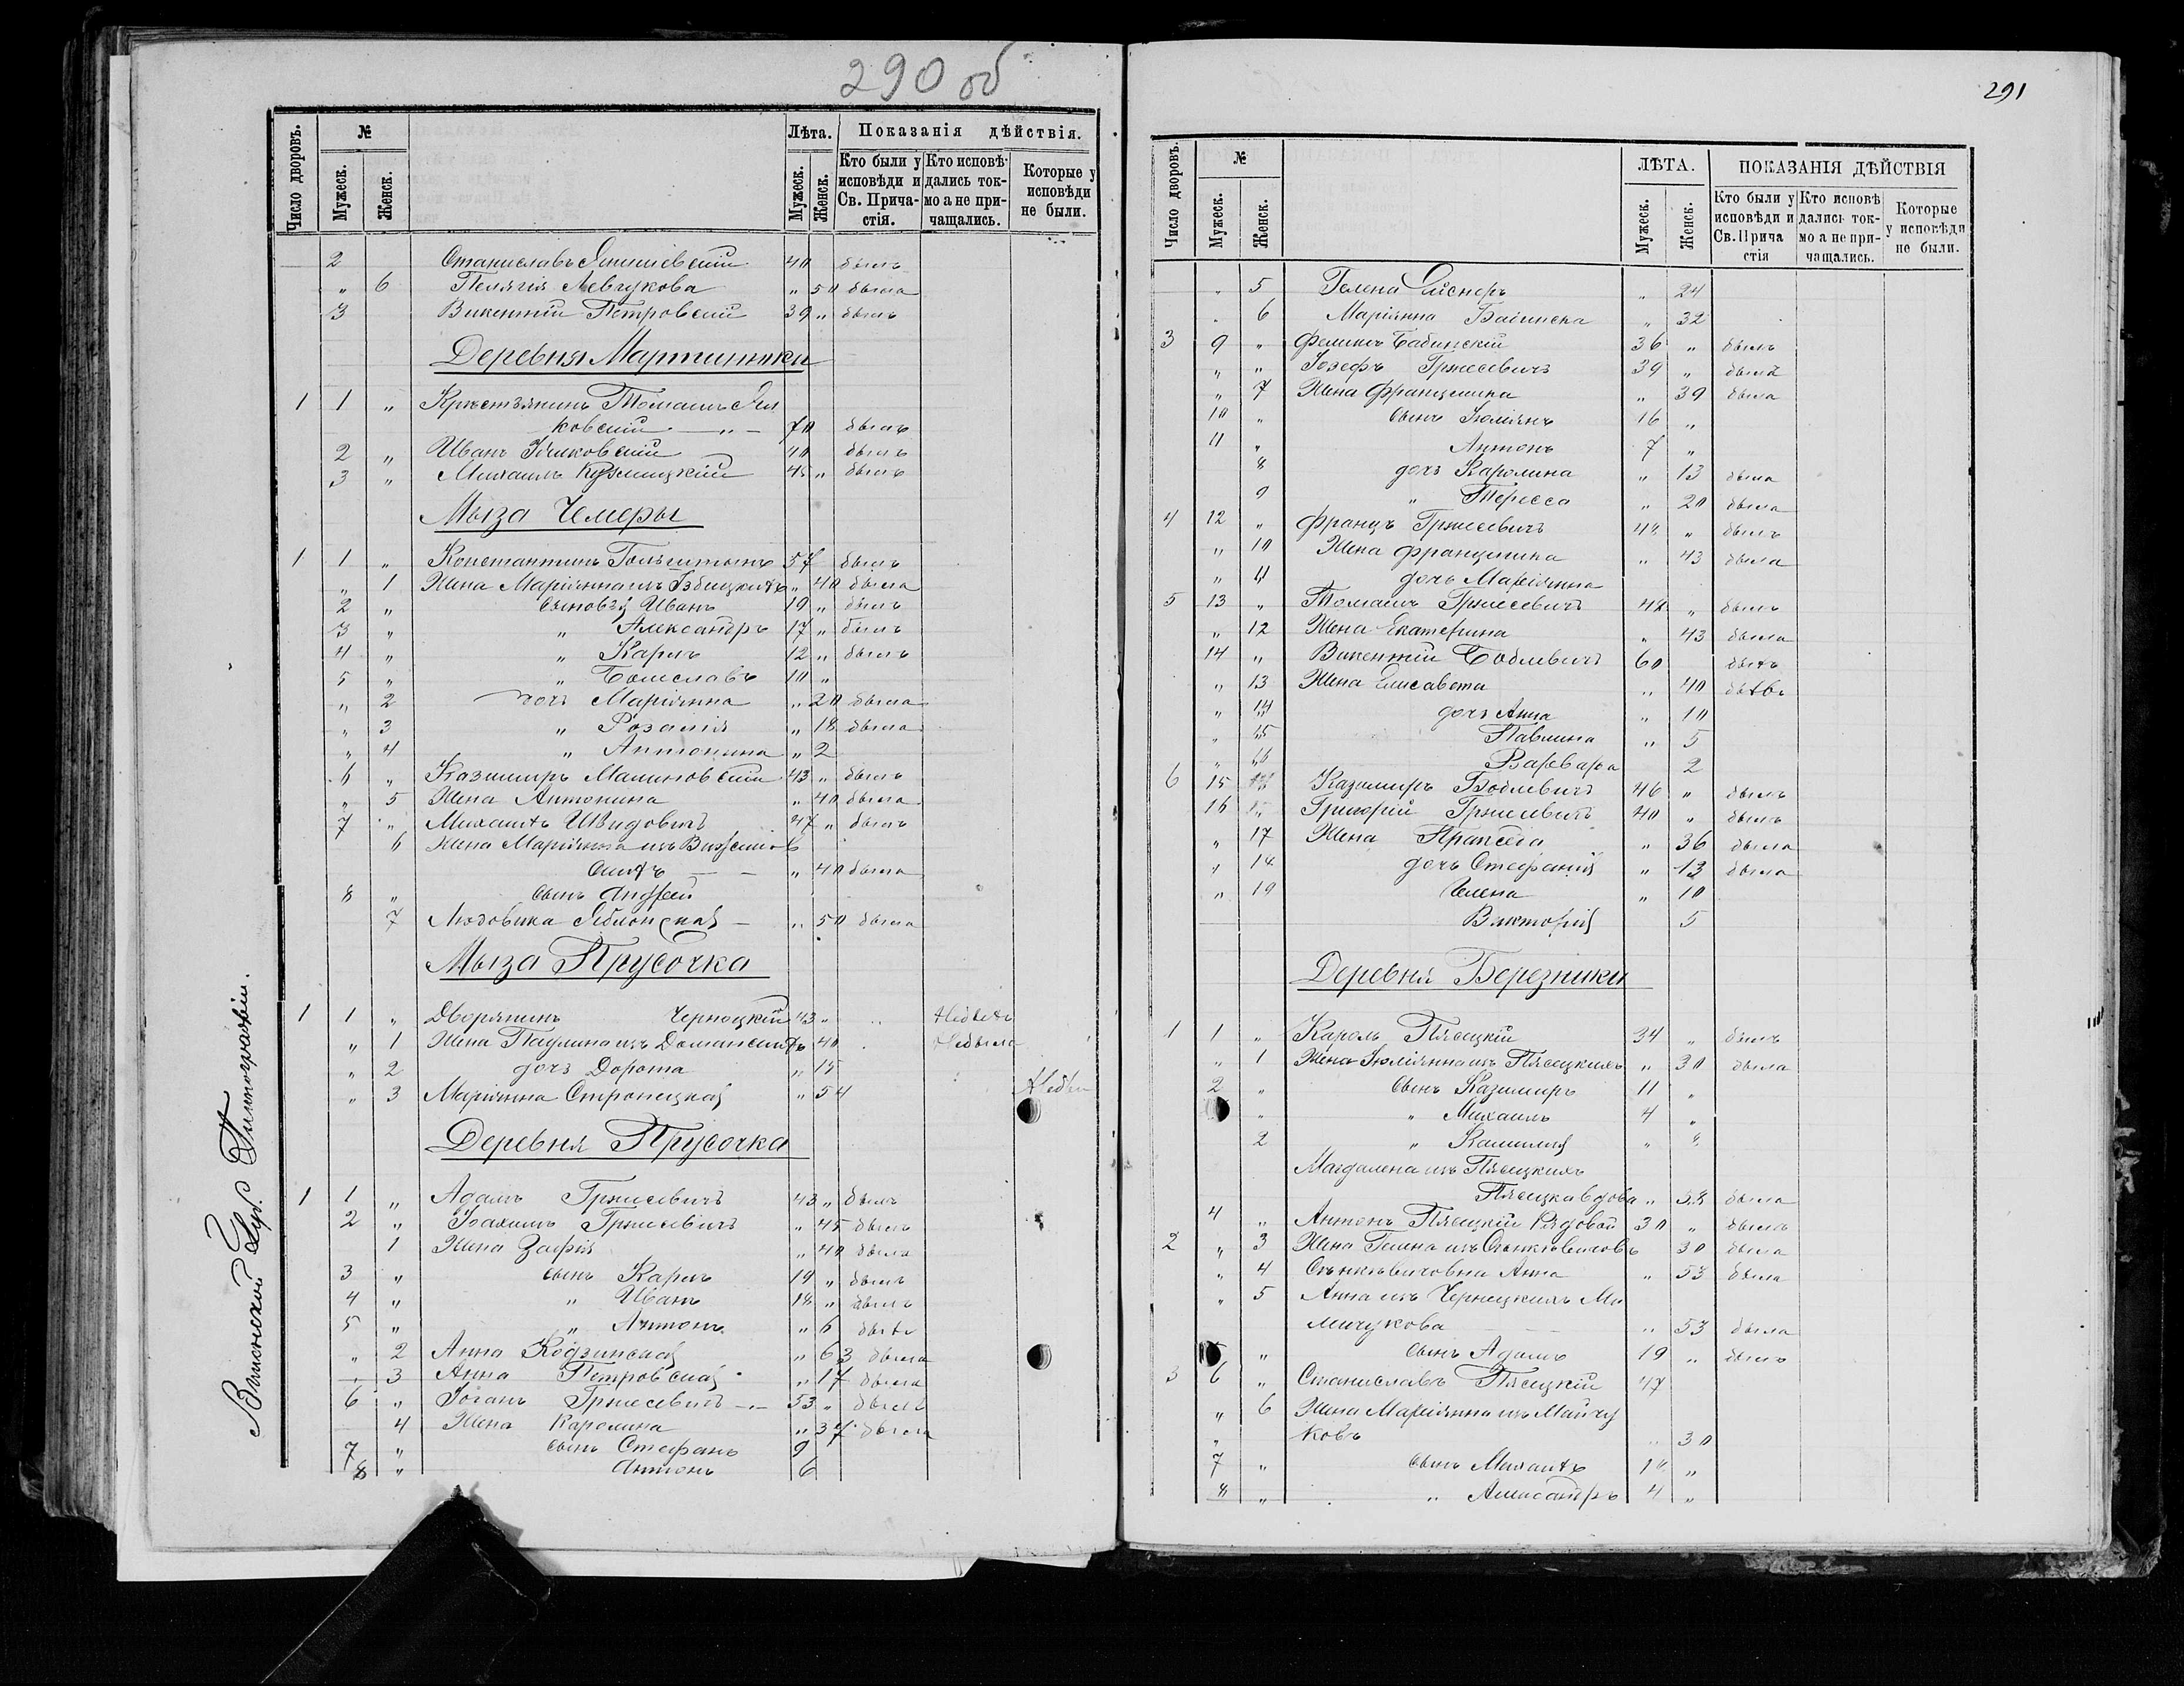 290 об
Число дворовъ. № Лѣта. Показанія дѣйствія.
Мужеск. Женск. Мужеск. Женск. Кто были у исповѣди и Св. Прича-стія. Кто исповѣ-дались ток-мо а не при-чащались. Которые у исповѣди не были.
2 Станиславъ 40 былъ
" 6 Пелагія Левчукова " 50 была
3 Викентій Петровскій 39 " былъ
Деревня Мартишки
1 1 " Крестьянинъ Томашъ Ян
ковскій " 70 былъ
2 " Иванъ 40 былъ
3 " Михаилъ " былъ
Мыза Чемеры
1 1 " Константинъ 57 былъ
" 1 Жена Маріянна изъ " 40 была
2 " Сыновья Иванъ 19 " былъ
3 " " Александръ 17 " былъ
4 " " Карлъ 12 " былъ
5 " " Болеславъ 10 "
" 2 дочь Маріянна " 20 была
" 3 " Розалія " 18 была
" 4 " Антонина " 2
6 " Казимиръ Малиновскій 43 " былъ
" 5 Жена Антонина " 40 была
7 " Михаилъ Швидовичъ 47 " былъ
6 Жена Маріянна изъ
" 40 была
8 " сынъ Андрей
7 Людовика Яблонская " 50 была
Мыза Прусочка
1 1 " Дворянинъ Черноцкій 43 "
" 1 Жена Паулина изъ " 40 Небыла
" 2 дочь Дорота " 15
" 3 Маріянна Стронецкая " 54
Деревня Прусочка
1 1 " Адамъ Гржесевичъ 43 " былъ
2 " Іоахимъ Гржесевичъ " 45 былъ
1 Жена Зафія " 40 была
3 " сынъ Карлъ 19 " былъ
4 " " Иванъ 18 " былъ
5 " " Антонъ " 6
" 2 Анна " 63 была
" 3 Анна Петровская " 17 была
6 " Іоганъ Гржесевичъ 53 " былъ
4 Жена Каролина " 37 была
7 " сынъ Стефанъ 9
8 " Антонъ 6
Виленской Губ. Типографіи.
291
Число дворовъ. № ЛѢТА. ПОКАЗАНІЯ ДѢЙСТВІЯ
Мужеск. Женск. Мужеск. Женск. Кто были у исповѣди и Св. Прича стія Кто исповѣ дались ток-мо а не при-чащались. Которые у исповѣди не были.
" 5 Гелена " 24
" 6 Маріянна " 32
3 9 " Феликсъ Бабинскій 36 " былъ
" " Іозефъ Гржесевичъ 39 " былъ
" 7 Жена Францишка " 39 была
10 " сынъ Юліянъ 16 "
11 " Антонъ 7 "
8 дочь Каролина " 13 была
9 " Тересса " 20 была
4 12 " Францъ Гржесевичъ 48 " былъ
" 10 Жена Францишка " 43 была
" 11 дочь Маріянна
5 13 " Томашъ Гржесевичъ 48 " былъ
" 12 Жена Екатерина " 43 была
14 " Викентій Бовлевичъ 60 былъ
" 13 Жена Елисавета " 40
" 14 дочь Анна " 10
" 15 Павлина " 5
" 16 Варвара 2
6 15 Казимиръ Бовлевичъ 46 " былъ
16 Григорій Гржесевичъ 40 " былъ
" 17 Жена Праксета " 36 была
" 18 дочь Стефанія " 13 была
" 19 Гелена " 10
Викторія 5
Деревня Березники
1 1 " Кароль Плесцкій 34 " былъ
" 1 Жена Юліянна изъ Плесцкихъ " 30 была
2 " сынъ Казимиръ 11 "
" " Михаилъ 4 "
2 " Камилія "
Магдалена изъ Плесцкихъ
Плесцка вдова " была
4 " Антонъ Плесцкій Рядовой 30 " былъ
2 " 3 Жена Гелена изъ 30 была
" 4 Анна " 53 была
" 5 Анна изъ Чернецкихъ Ми
мичукова " 53 была
" сынъ Адамъ 19 " былъ
3 6 " Станиславъ Плесцкій 47
" 6 Жена Маріянна изъ Майчу
" ковъ " 30
7 " сынъ Михаилъ "
8 " " Александръ 4 "